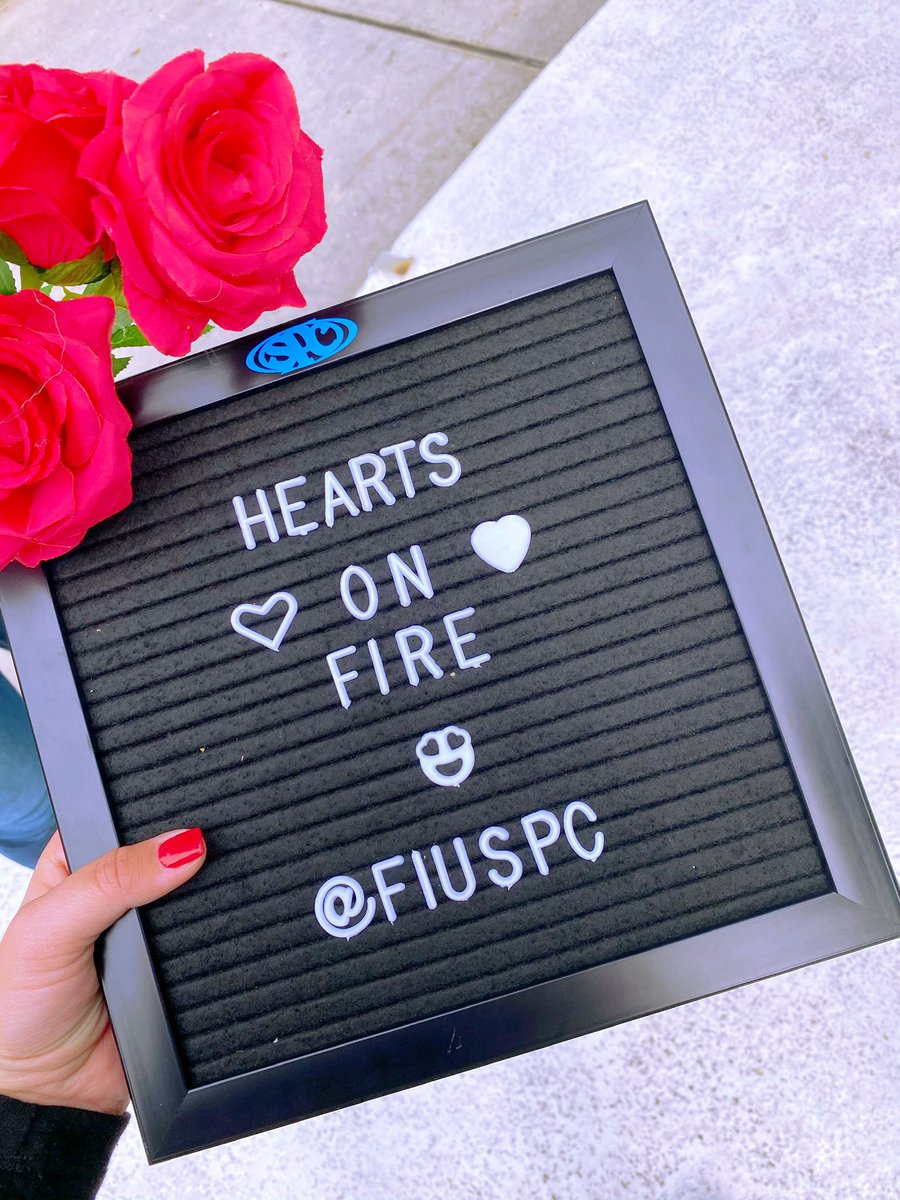 SPC
HEARTS
ON
FIRE
@FIUSPC